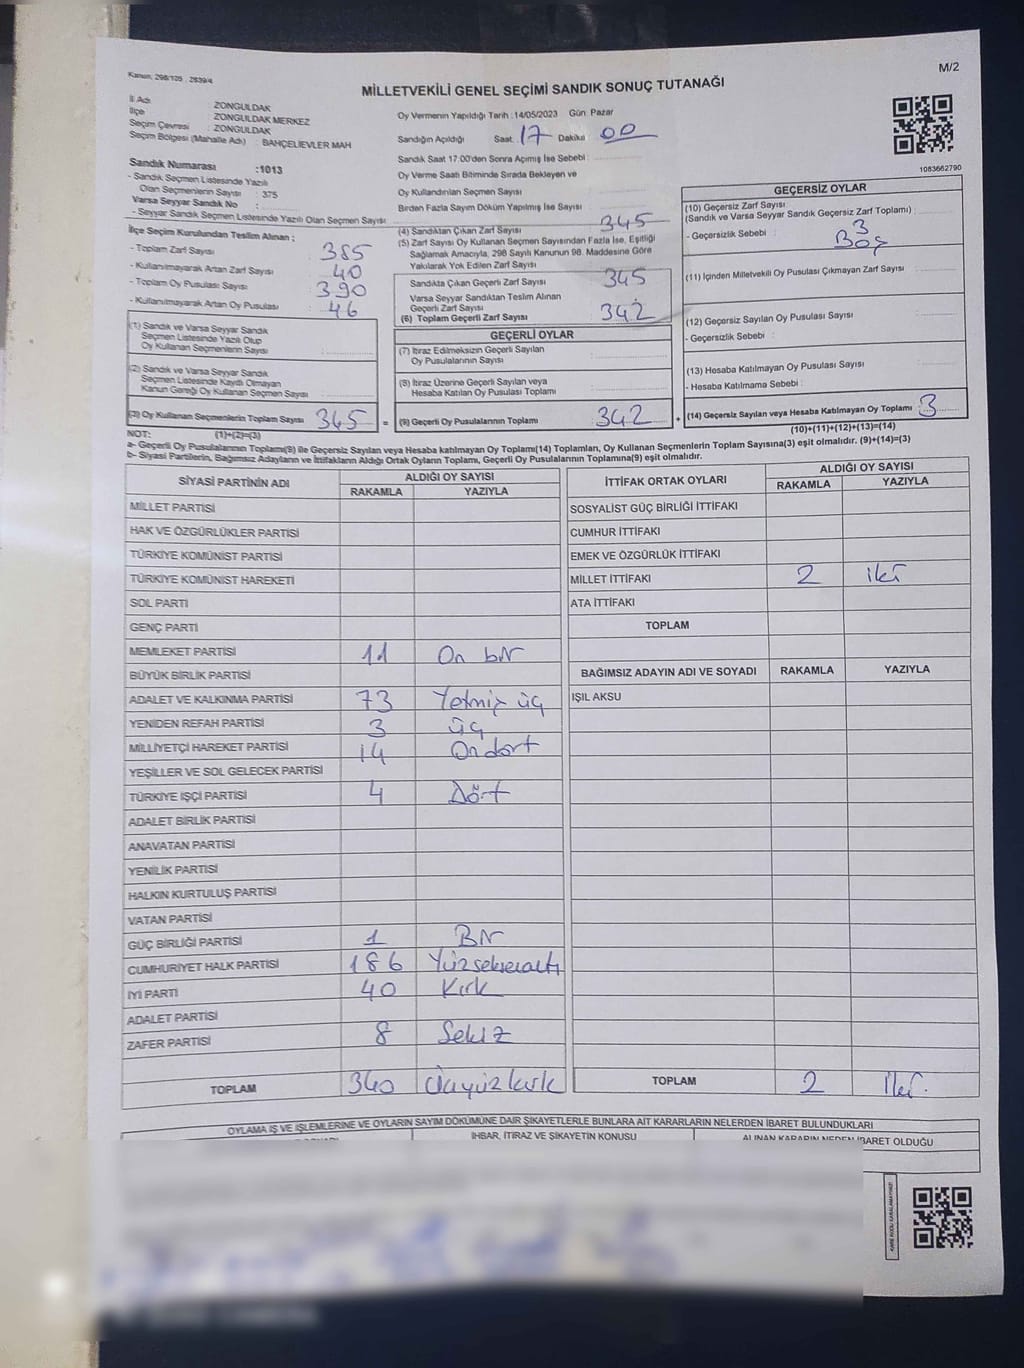 Kanun, 298/105 , 2839/4
M/2
MİLLETVEKİLİ GENEL SEÇİMİ SANDIK SONUÇ TUTANAĞI
İl Adı : ZONGULDAK
İlçe : ZONGULDAK MERKEZ
Seçim Çevresi : ZONGULDAK
Seçim Bölgesi (Mahalle Adı) : BAHÇELİEVLER MAH
Sandık Numarası :1013
- Sandık Seçmen Listesinde Yazılı
Olan Seçmenlerin Sayısı : 375
Varsa Seyyar Sandık No :
- Seyyar Sandık Seçmen Listesinde Yazılı Olan Seçmen Sayısı
İlçe Seçim Kurulundan Teslim Alınan :
- Toplam Zarf Sayısı 385
- Kullanılmayarak Artan Zarf Sayısı 40
- Toplam Oy Pusulası Sayısı 390
- Kullanılmayarak Artan Oy Pusulası 46
(1) Sandık ve Varsa Seyyar Sandık
Seçmen Listesinde Yazılı Olup
Oy Kullanan Seçmenlerin Sayısı :
(2) Sandık ve Varsa Seyyar Sandık
Seçmen Listesinde Kayıtlı Olmayan
Kanun Gereği Oy Kullanan Seçmen Sayısı :
(3) Oy Kullanan Seçmenlerin Toplam Sayısı 345 =
Oy Vermenin Yapıldığı Tarih :14/05/2023 Gün: Pazar
Sandığın Açıldığı Saat: 17 Dakika: 00
Sandık Saat 17:00'den Sonra Açımış İse Sebebi :
Oy Verme Saati Bitiminde Sırada Bekleyen ve
Oy Kullandırılan Seçmen Sayısı
Birden Fazla Sayım Döküm Yapılmış İse Sayısı :
(4) Sandıktan Çıkan Zarf Sayısı : 345
(5) Zarf Sayısı Oy Kullanan Seçmen Sayısından Fazla İse, Eşitliği
Sağlamak Amacıyla, 298 Sayılı Kanunun 98. Maddesine Göre
Yakılarak Yok Edilen Zarf Sayısı
Sandıkta Çıkan Geçerli Zarf Sayısı 345
Varsa Seyyar Sandıktan Teslim Alınan
Geçerli Zarf Sayısı
(6) Toplam Geçerli Zarf Sayısı : 342
GEÇERLİ OYLAR
(7) İtiraz Edilmeksizin Geçerli Sayılan
Oy Pusulalarının Sayısı :
(8) İtiraz Üzerine Geçerli Sayılan veya
Hesaba Katılan Oy Pusulası Toplamı :
(9) Geçerli Oy Pusulalarının Toplamı : 342 +
1083662790
GEÇERSİZ OYLAR
(10) Geçersiz Zarf Sayısı
(Sandık ve Varsa Seyyar Sandık Geçersiz Zarf Toplamı) : 3
- Geçersizlik Sebebi : Boş
(11) İçinden Milletvekili Oy Pusulası Çıkmayan Zarf Sayısı
(12) Geçersiz Sayılan Oy Pusulası Sayısı :
- Geçersizlik Sebebi :
(13) Hesaba Katılmayan Oy Pusulası Sayısı
- Hesaba Katılmama Sebebi :
(14) Geçersiz Sayılan veya Hesaba Katılmayan Oy Toplamı : 3
NOT: (1)+(2)=(3)
(10)+(11)+(12)+(13)=(14)
a- Geçerli Oy Pusulalarının Toplamı(9) ile Geçersiz Sayılan veya Hesaba katılmayan Oy Toplamı(14) Toplamları, Oy Kullanan Seçmenlerin Toplam Sayısına(3) eşit olmalıdır. (9)+(14)=(3)
b- Siyasi Partilerin, Bağımsız Adayların ve İttifakların Aldığı Ortak Oyların Toplamı, Geçerli Oy Pusulalarının Toplamına(9) eşit olmalıdır.
SİYASİ PARTİNİN ADI ALDIĞI OY SAYISI
RAKAMLA YAZIYLA
MİLLET PARTİSİ
HAK VE ÖZGÜRLÜKLER PARTİSİ
TÜRKİYE KOMÜNİST PARTİSİ
TÜRKİYE KOMÜNİST HAREKETİ
SOL PARTİ
GENÇ PARTİ
MEMLEKET PARTİSİ 11 On bir
BÜYÜK BİRLİK PARTİSİ
ADALET VE KALKINMA PARTİSİ 73 Yetmiş üç
YENİDEN REFAH PARTİSİ 3 üç
MİLLİYETÇİ HAREKET PARTİSİ 14 Ondört
YEŞİLLER VE SOL GELECEK PARTİSİ
TÜRKİYE İŞÇİ PARTİSİ 4 Dört
ADALET BİRLİK PARTİSİ
ANAVATAN PARTİSİ
YENİLİK PARTİSİ
HALKIN KURTULUŞ PARTİSİ
VATAN PARTİSİ
GÜÇ BİRLİĞİ PARTİSİ 1 Bir
CUMHURİYET HALK PARTİSİ 186 Yüzseksenaltı
İYİ PARTİ 40 Kırk
ADALET PARTİSİ
ZAFER PARTİSİ 8 Sekiz
TOPLAM 340 Üçyüzkırk
İTTİFAK ORTAK OYLARI ALDIĞI OY SAYISI
RAKAMLA YAZIYLA
SOSYALİST GÜÇ BİRLİĞİ İTTİFAKI
CUMHUR İTTİFAKI
EMEK VE ÖZGÜRLÜK İTTİFAKI
MİLLET İTTİFAKI 2 iki
ATA İTTİFAKI
TOPLAM
BAĞIMSIZ ADAYIN ADI VE SOYADI RAKAMLA YAZIYLA
IŞIL AKSU
TOPLAM 2 İki.
OYLAMA İŞ VE İŞLEMLERİNE VE OYLARIN SAYIM DÖKÜMÜNE DAİR ŞİKAYETLERLE BUNLARA AİT KARARLARIN NELERDEN İBARET BULUNDUKLARI
İHBAR, İTİRAZ VE ŞİKAYETİN KONUSU
ALINAN KARARIN NEDEN İBARET OLDUĞU
KARE KODU KARALAMAYINIZ!